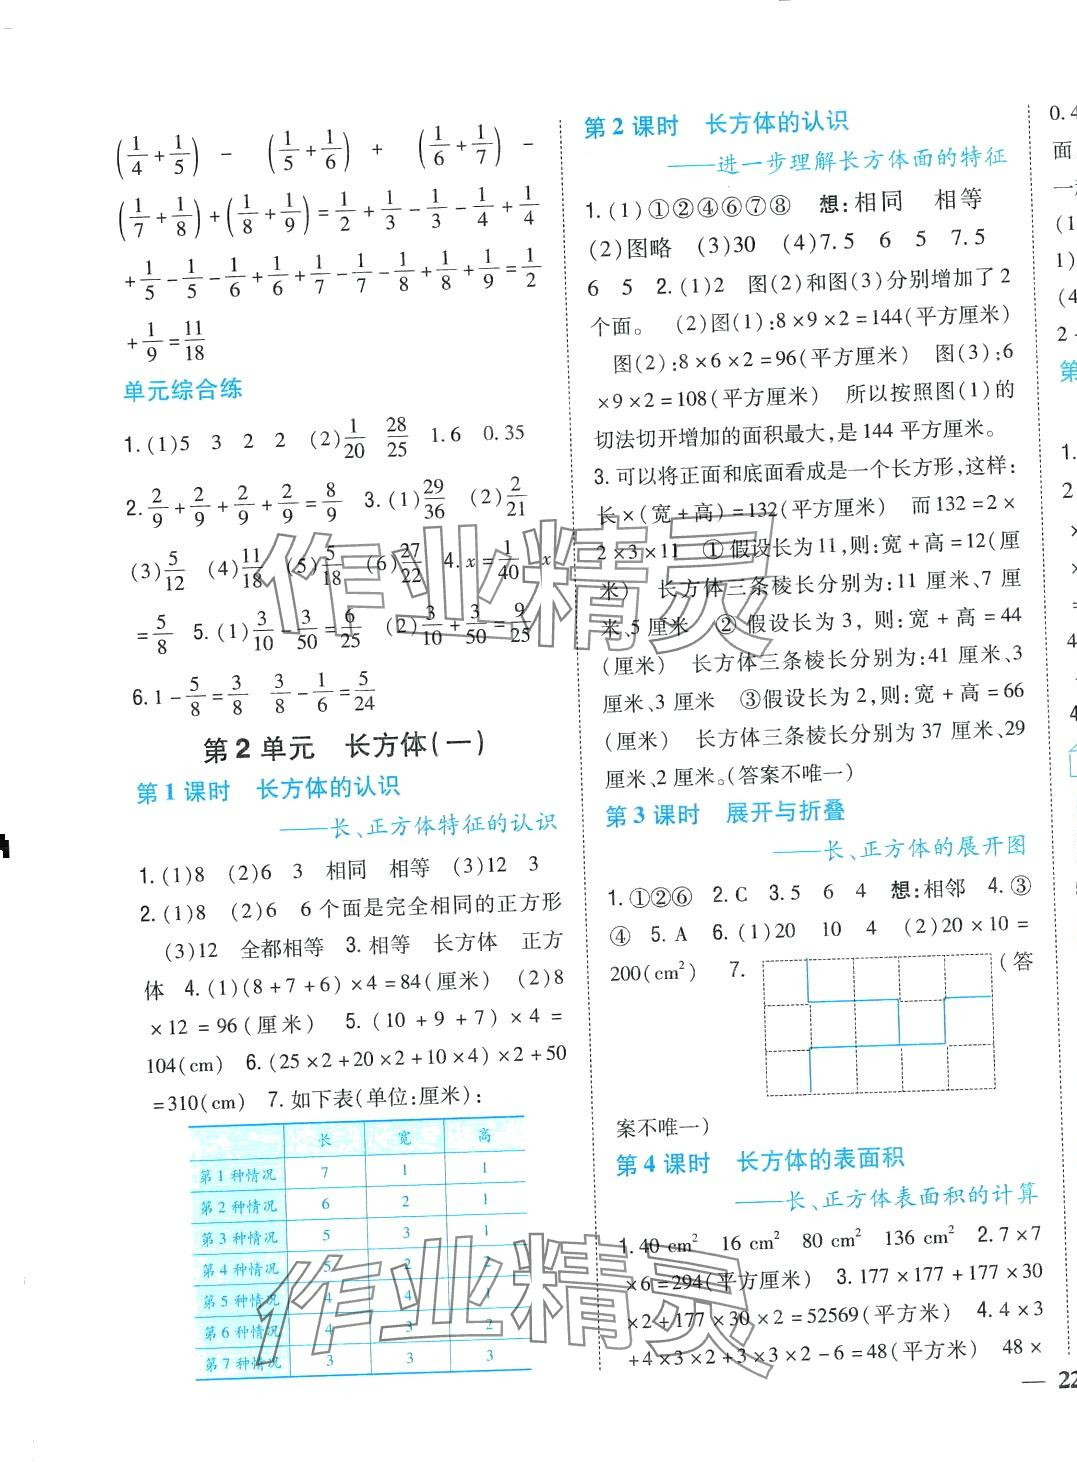 (1/4+1/5) − (1/5+1/6) + (1/6+1/7) −
(1/7+1/8)+(1/8+1/9)=1/2+1/3−1/3−1/4+1/4
+1/5−1/5−1/6+1/6+1/7−1/7−1/8+1/8+1/9=1/2
+1/9=11/18
单元综合练
1.(1)5 3 2 2 (2)1/20 28/25 1.6 0.35
2.2/9+2/9+2/9+2/9=8/9 3.(1)29/36 (2)2/21
(3)5/12 (4)11/18 (5)5/18 (6)27/22 4.x=1/40 x
=5/8 5.(1)3/10−3/50=6/25 (2)3/10+3/50=9/25
6.1−5/8=3/8 3/8−1/6=5/24
第2单元 长方体(一)
第1课时 长方体的认识
——长、正方体特征的认识
1.(1)8 (2)6 3 相同 相等 (3)12 3
2.(1)8 (2)6 6个面是完全相同的正方形
(3)12 全都相等 3.相等 长方体 正方
体 4.(1)(8+7+6)×4=84(厘米) (2)8
×12=96(厘米) 5.(10+9+7)×4=
104(cm) 6.(25×2+20×2+10×4)×2+50
=310(cm) 7.如下表(单位:厘米):
长 宽 高
第1种情况 7 1 1
第2种情况 6 2 1
第3种情况 5 3 1
第4种情况 5 2 2
第5种情况 4 4 1
第6种情况 4 3 2
第7种情况 3 3 3
第2课时 长方体的认识
——进一步理解长方体面的特征
1.(1)①②④⑥⑦⑧ 想:相同 相等
(2)图略 (3)30 (4)7.5 6 5 7.5
6 5 2.(1)2 图(2)和图(3)分别增加了2
个面。 (2)图(1):8×9×2=144(平方厘米)
图(2):8×6×2=96(平方厘米) 图(3):6
×9×2=108(平方厘米) 所以按照图(1)的
切法切开增加的面积最大,是144平方厘米。
3.可以将正面和底面看成是一个长方形,这样:
长×(宽+高)=132(平方厘米) 而132=2×
2×3×11 ①假设长为11,则:宽+高=12(厘
米) 长方体三条棱长分别为:11厘米、7厘
米、5厘米 ②假设长为3,则:宽+高=44
(厘米) 长方体三条棱长分别为:41厘米、3
厘米、3厘米 ③假设长为2,则:宽+高=66
(厘米) 长方体三条棱长分别为37厘米、29
厘米、2厘米。(答案不唯一)
第3课时 展开与折叠
——长、正方体的展开图
1.①②⑥ 2.C 3.5 6 4 想:相邻 4.③
④ 5.A 6.(1)20 10 4 (2)20×10=
200(cm²) 7. (答
案不唯一)
第4课时 长方体的表面积
——长、正方体表面积的计算
1.40 cm² 16 cm² 80 cm² 136 cm² 2.7×7
×6=294(平方厘米) 3.177×177+177×30
×2+177×30×2=52569(平方米) 4.4×3
+4×3×2+3×3×2−6=48(平方米) 48×
0.4
面
(1
1)
(4
2
第
1.
2
4
— 22
作业精灵
作业精灵